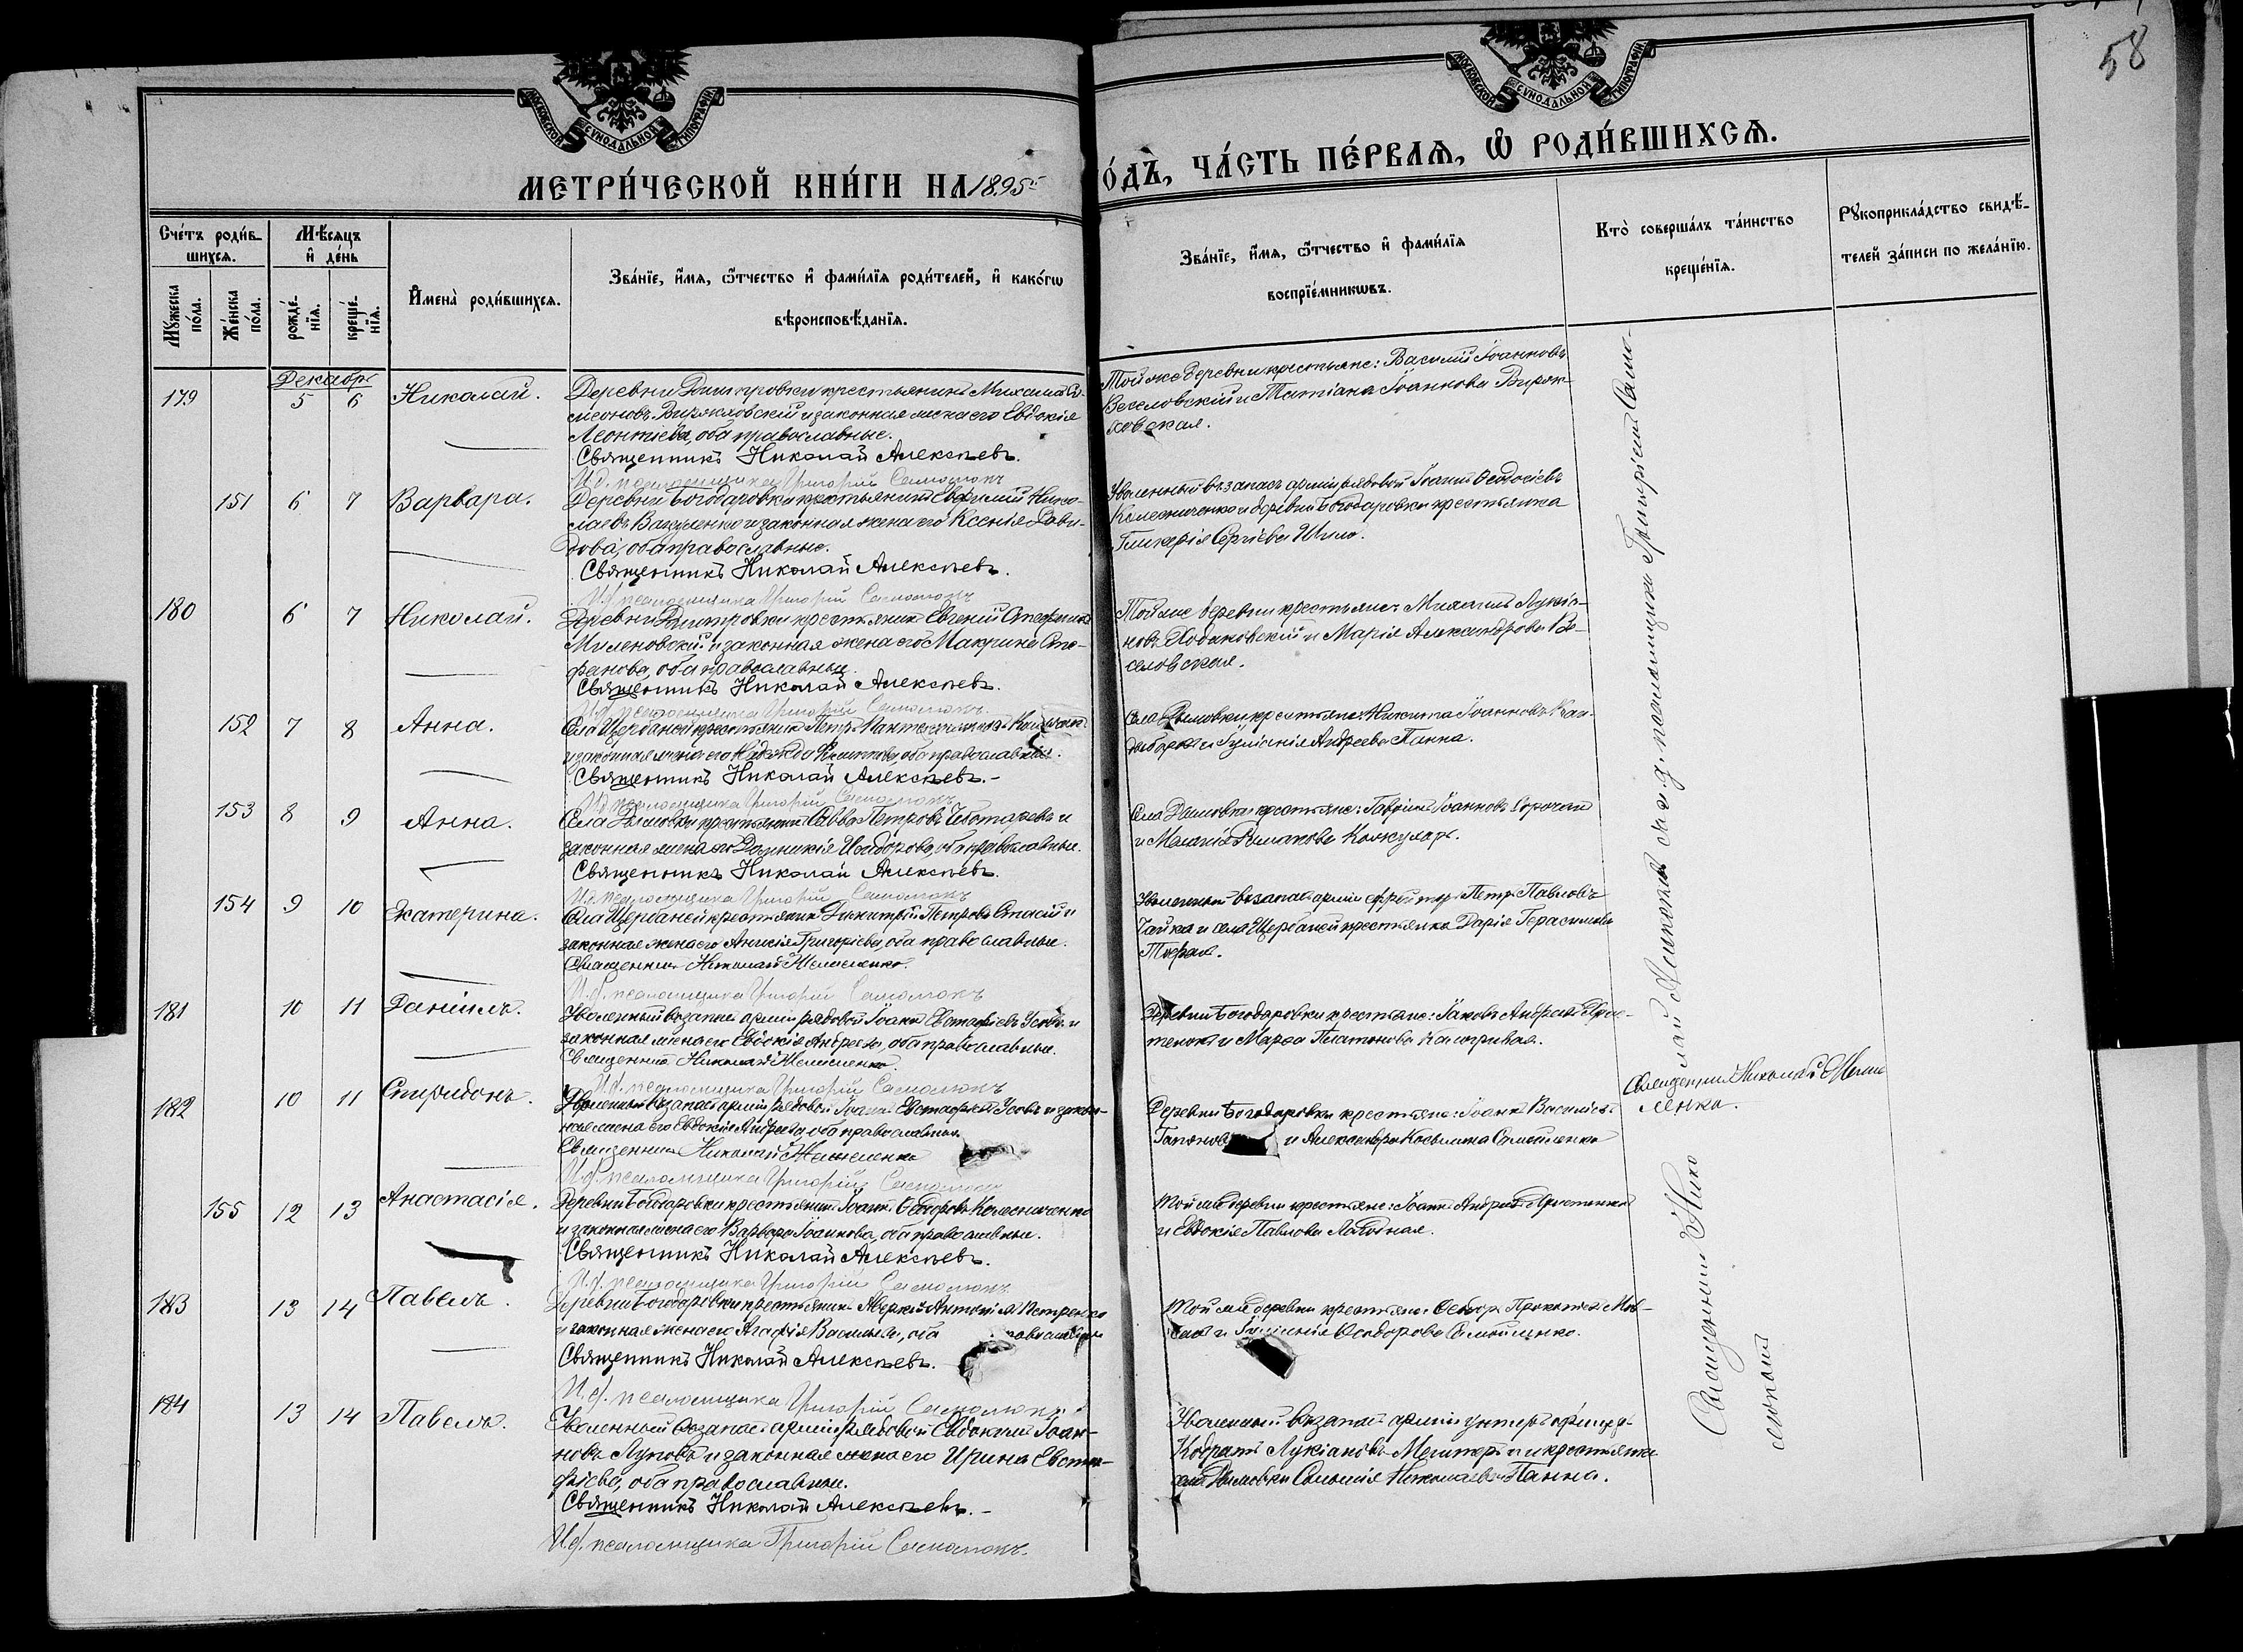 58
МОСКОВСКОЙ СѴНОДАЛЬНОЙ ТИПОГРАФІИ
МОСКОВСКОЙ СѴНОДАЛЬНОЙ ТИПОГРАФІИ
МЕТРИ́ЧЕСКОЙ КНИ́ГИ НА 1895й
О́ДЪ, ЧА́СТЬ ПЕ́РВАѦ, Ѡ РОДИ́ВШИХСѦ.
Сче́тъ роди́в-
шихсѧ.
Мꙋ́жеска по́ла.
Же́нска по́ла.
Мѣ́сѧцъ
и҆ де́нь
рожде́-нїѧ.
креще́-нїѧ.
И҆мена̀ роди́вшихсѧ.
Зва́нїе, и҆́мѧ, ѻ҆́тчество и҆ фами́лїѧ роди́телей, и҆ како́гѡ
вѣроисповѣ́данїѧ.
Зва́нїе, и҆́мѧ, ѻ҆́тчество и҆ фами́лїѧ
воспрїе́мникѡвъ.
Кто̀ соверша́лъ та́инство
креще́нїѧ.
Рꙋкоприкла́дство свидѣ́-
телей за́писи по жела́нїю.
Декабрь
179 5 6 Николай.
Деревни Димитровки крестьянинъ Михаилъ Си-
меоновъ и законная жена его Евдокія
Леонтіева, оба православные.
Священникъ Николай Алексѣевъ.
И.д. псаломщика Григорій Самолюкъ
Той же деревни крестьяне: Василій Іоанновъ
Веселовскій и Татіана Іоаннова Вирж-
ховская.
151 6 7 Варвара.
Деревни Богодаровки крестьянинъ Евфимій Нико-
лаевъ и законная жена его Ксенія Дави-
дова, оба православные.
Священникъ Николай Алексѣевъ.
И.д. псаломщика Григорій Самолюкъ
Уволенный въ запасъ арміи рядовой Іоаннъ Ѳеодосіевъ
Колесниченко и деревни Богодаровки крестьянка
Гликерія Сергіева Шило.
180 6 7 Николай.
Деревни Димитровки крестьянинъ Евгеній Стефановъ
Миленовскій и законная жена его Макрина Сте-
фанова, оба православные.
Священникъ Николай Алексѣевъ.
И.д. псаломщика Григорій Самолюкъ.
Той же деревни крестьяне Михаилъ Лукіа-
новъ Ходаковскій и Марія Александрова Ве-
селовская.
152 7 8 Анна.
Села Щербаней крестьянинъ Петръ Пантелеимоновъ
и законная жена его Надежда, оба православные.
Священникъ Николай Алексѣевъ.-
И.д. псаломщика Григорій Самолюкъ
Села Дымовки крестьяне: Никита Іоанновъ Кан-
дыборъ и Іуліанія Андреева Панна.
153 8 9 Анна.
Села Дымовки крестьянинъ Савва Петровъ Чеботаревъ и
законная жена его Домникія Исидорова, оба православные.
Священникъ Николай Алексѣевъ.
И.д. псаломщика Григорій Самолюкъ
Села Дымовки крестьяне: Гавріилъ Іоанновъ Сорочанъ
и Меланія Романова Кожухарь.
154 9 10 Екатерина.
Села Щербаней крестьянинъ Димитрій Петровъ Стасій и
законная жена его Анисія Григоріева, оба православные.
Священникъ Николай Желтенко.
И.д. псаломщика Григорій Самолюкъ
Уволенный въ запасъ арміи ефрейторъ Петръ Павловъ
Чайка и села Щербаней крестьянка Дарія Герасимова
181 10 11 Даніилъ.
Уволенный въ запасъ арміи рядовой Іоаннъ Евстафіевъ Усовъ и
законная жена его Евдокія Андреева, оба православные.
Священникъ Николай
И.д. псаломщика Григорій Самолюкъ
Деревни Богодаровки крестьяне: Іаковъ Андреевъ Хрис-
тенко и Марѳа Платонова Калогривая.
182 10 11 Спиридонъ.
Уволенный въ запасъ арміи рядовой Іоаннъ Евстафіевъ Усовъ и закон-
ная жена его Евдокія Андреева, оба православные.
Священникъ Николай
И.д. псаломщика Григорій Самолюкъ
Деревни Богодаровки крестьяне: Іоаннъ Василіевъ
Гапонов и Александра Космина Самойленко
155 12 13 Анастасія.
Деревни Богодаровки крестьянинъ Іоаннъ Ѳеодоровъ Колесниченко
и законная жена его Варвара Іоаннова, оба православные.
Священникъ Николай Алексѣевъ.
И.д. псаломщика Григорій Самолюкъ
Той же деревни крестьяне: Іоаннъ Андреевъ Христенко
и Евдокія Павлова Лагодная.
183 13 14 Павелъ.
Деревни Богодаровки крестьянинъ Аверкій Антоніевъ Петренко
и законная жена его Агафія Василіева, оба православные
Священникъ Николай Алексѣевъ.
И.д. псаломщика Григорій Самолюкъ
Той же деревни крестьяне: Ѳеодоръ Прокопіевъ
и Іуліанія Ѳеодорова Самойленко.
184 13 14 Павелъ.
Уволенный въ запасъ арміи рядовой Евдокимъ Іоан-
новъ Луговъ и законная жена его Ирина Евста-
фіева, оба православные.
Священникъ Николай Алексѣевъ.-
И.д. псаломщика Григорій Самолюкъ.
Уволенный въ запасъ арміи унтеръ-офицеръ
Кодратъ Лукіановъ и крестьянка
села Дымовки Соломія Николаева Панна.
Священникъ Николай Алексѣевъ съ и.д. псаломщика Григоріемъ Само-
люкомъ
Священникъ Николай
ленко.